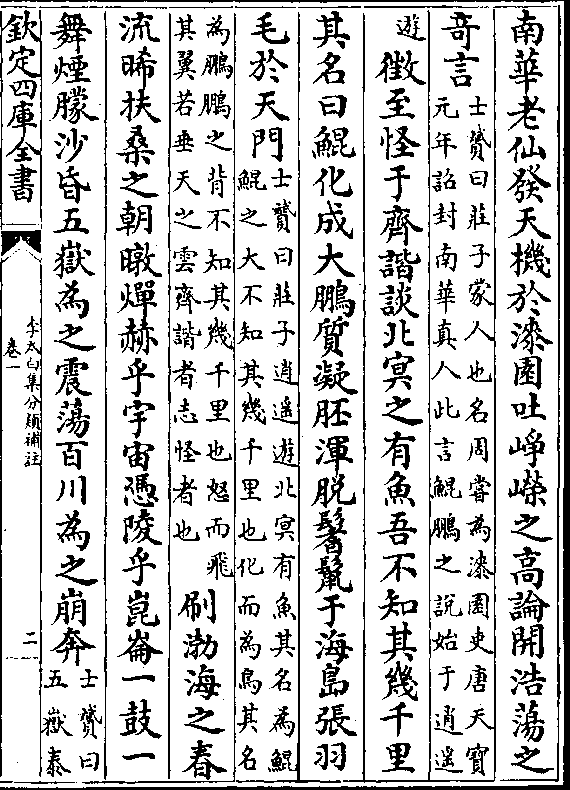 南華老仙發天機於漆園吐崢嶸之高論開浩蕩之
奇言
士贇曰莊子蒙人也名周嘗為漆園吏唐天寶
元年詔封南華真人此言鯤鵬之說始于逍遥
遊
徴至怪于齊諧談北㝠之有魚吾不知其幾千里
其名曰鯤化成大鵬質凝胚渾脱鬐鬛于海島張羽
毛於天門
士贇曰莊子逍遥遊北㝠有魚其名為鯤
鯤之大不知其幾千里也化而為鳥其名
為鵬鵬之背不知其幾千里也怒而飛
其翼若垂天之雲齊諧者志怪者也
刷渤海之春
流晞扶桑之朝暾燀赫乎宇宙憑陵乎崑崙一鼓一
舞煙朦沙昏五嶽為之震蕩百川為之崩奔
士贇曰
五嶽泰
欽定四庫全書
李太白集分類補註
卷一
二